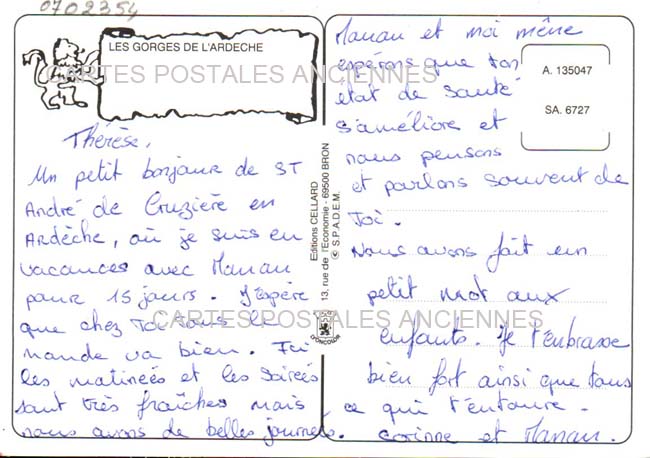 0702354
LES GORGES DE L'ARDECHE
CARTES POSTALES ANCIENNES
Thérèse,
Un petit bonjour de ST
André de Cruzière en
Ardèche, où je suis en
vacances avec Manau
pour 15 jours. J'espère
que chez toi tous le
monde va bien. Ici
les matineés et les soireés
sont très fraîches mais
nous avons de belles journeés.
Editions CELLARD
13, rue de l'Economie - 69500 BRON
© S.P.A.D.E.M.
Manau et moi même
espérons que ton
état de santé
s'améliore et
nous pensons
et parlons souvent de
Toi.
Nous avons fait un
petit mot aux
enfants. Je t'embrasse
bien fort ainsi que tous
ce qui t'entoure.
Corinne et Manau.
A. 135047
SA. 6727
CARTES POSTALES ANCIENNES